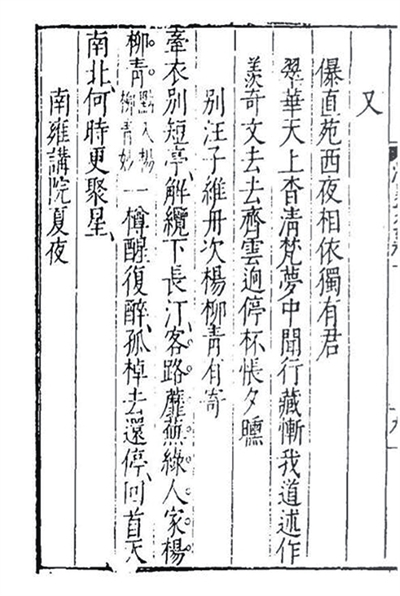 又
儤直苑西夜相依獨有君
翠華天上杳清梵夢中聞行藏慚我道述作
羨奇文去去齊雲逈停杯悵夕曛
别汪子維舟次楊柳青有寄
牽衣别短亭、解纜下長汀、客路蘼蕪綠、人家楊
柳青。點入楊柳青妙一樽醒復醉、孤棹去還停、回首天
南北、何時更聚星、
南雍講院夏夜